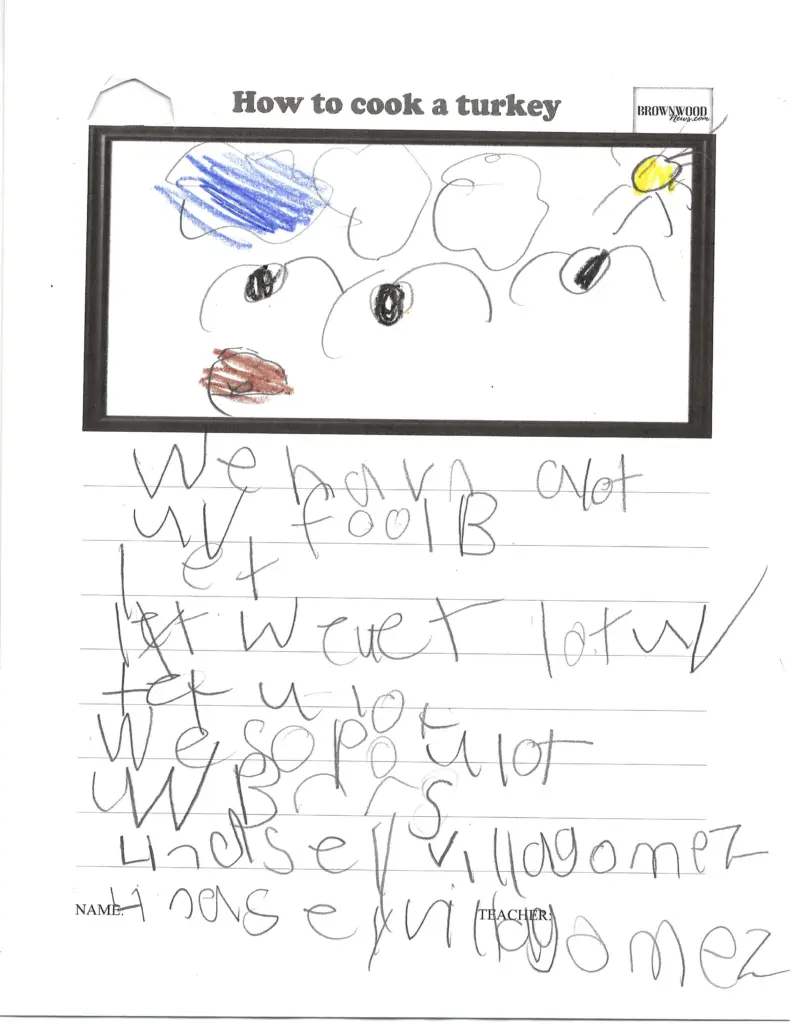 How to cook a turkey
BROWNWOOD
News.com
We havn alot
uv foolB
let
let we uet lot uv
tet u lot
We sopo u lot
uv B r r s
Lindsey villagomez
NAME: Lindsey villagomez TEACHER: